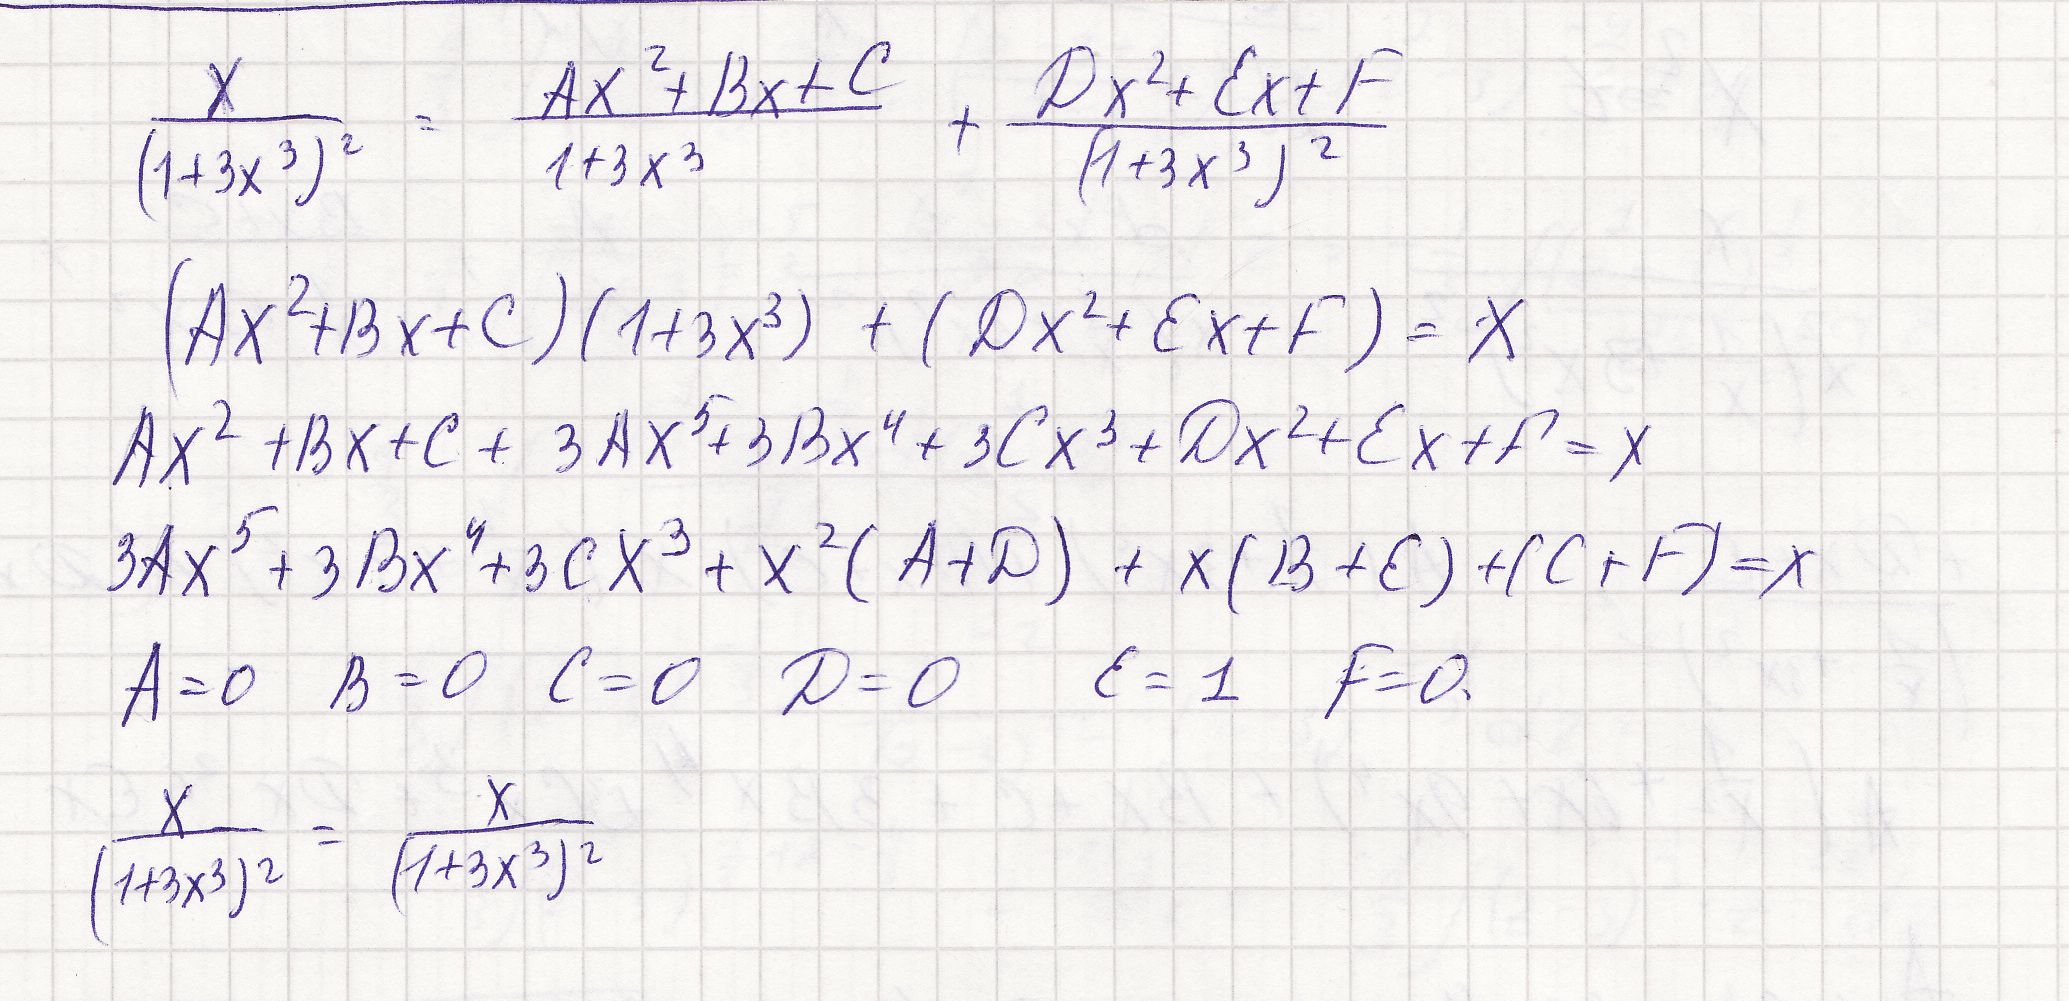 x/(1+3x³)² = Ax²+Bx+C/1+3x³ + Dx²+Ex+F/(1+3x³)²
(Ax²+Bx+C)(1+3x³) + (Dx²+Ex+F) = x
Ax²+Bx+C+3Ax⁵+3Bx⁴+3Cx³+Dx²+Ex+F=x
3Ax⁵+3Bx⁴+3Cx³+x²(A+D)+x(B+E)+(C+F)=x
A=0 B=0 C=0 D=0 E=1 F=0.
x/(1+3x³)² = x/(1+3x³)²